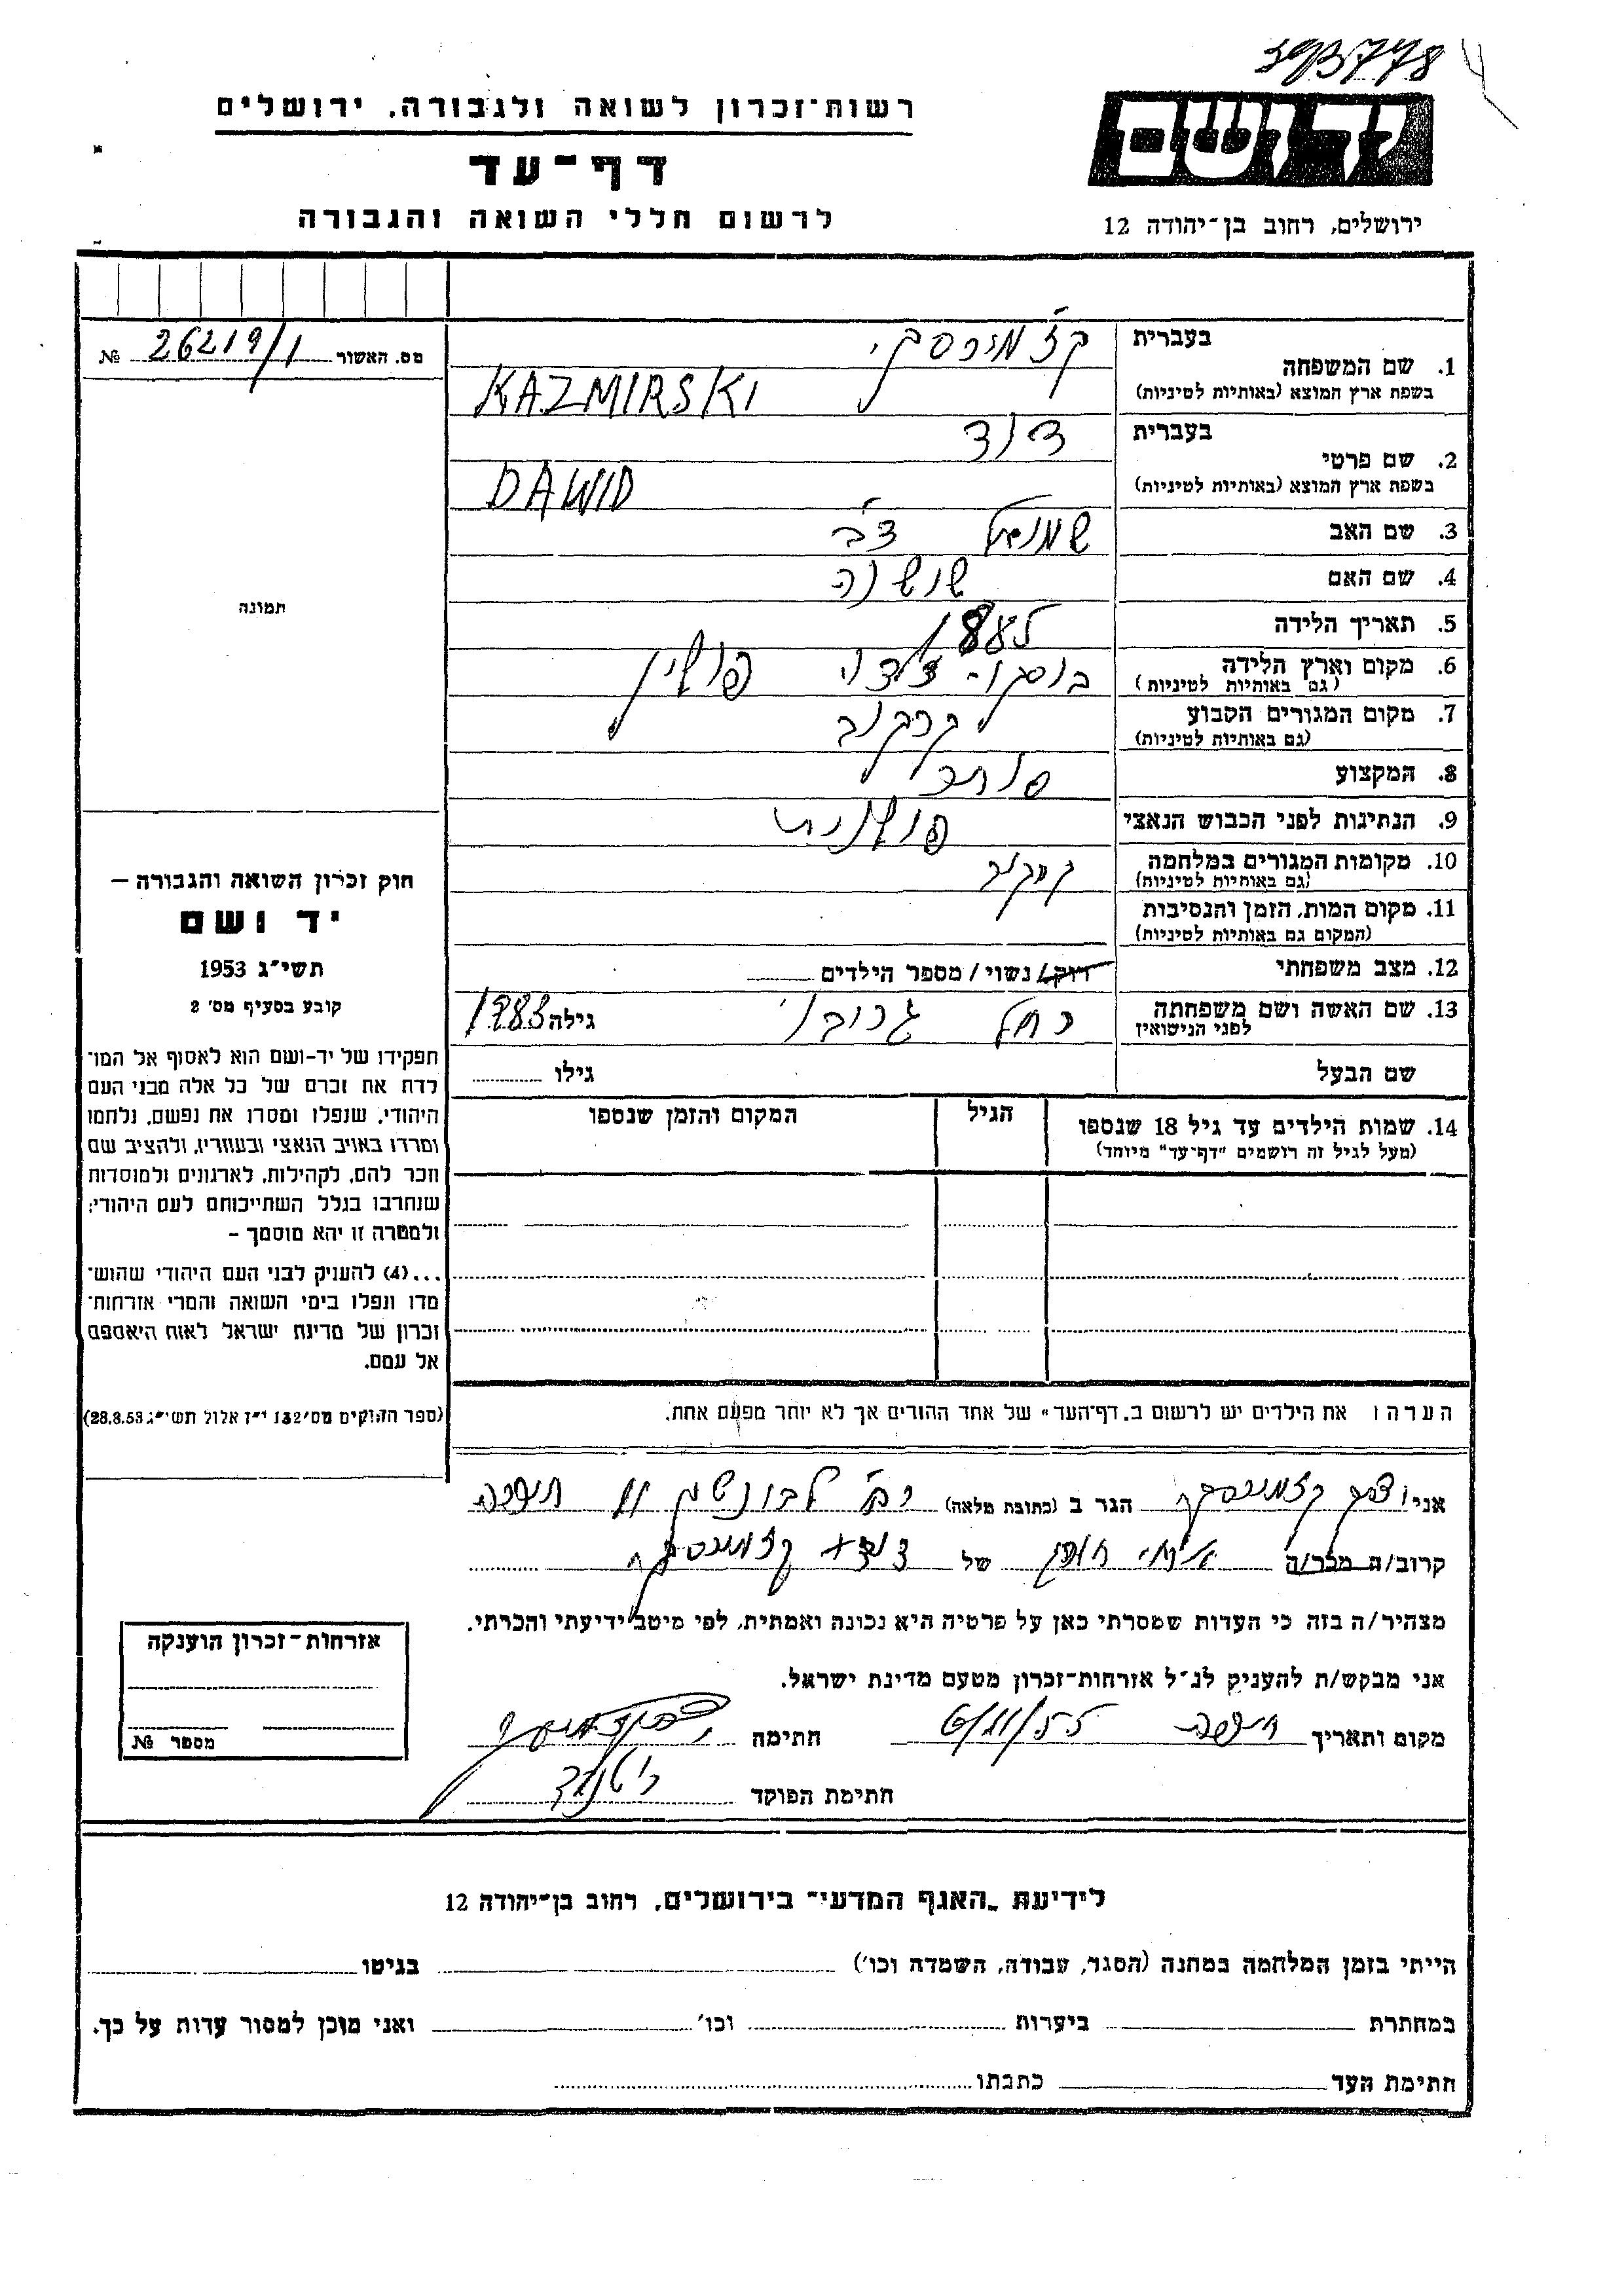 393778
רשות־זכרון לשואה ולגבורה, ירושלים
יד ושם
דף־עד
לרשום חללי השואה והגבורה
ירושלים, רחוב בן־יהודה 12
מס. האשור 26219/1 №
1. שם המשפחה
בעברית קזמירסקי
בשפת ארץ המוצא (באותיות לטיניות) KAZMIRSKI
2. שם פרטי
בעברית דוד
בשפת ארץ המוצא (באותיות לטיניות) DAWID
3. שם האב שמואל צבי
4. שם האם שושנה
5. תאריך הלידה 1885
6. מקום וארץ הלידה פולין
(גם באותיות לטיניות)
7. מקום המגורים הקבוע קרקוב
(גם באותיות לטיניות)
8. המקצוע סוחר
9. הנתינות לפני הכבוש הנאצי פולנית
10. מקומות המגורים במלחמה קרקוב
(גם באותיות לטיניות)
11. מקום המות, הזמן והנסיבות
(המקום גם באותיות לטיניות)
12. מצב משפחתי רוק/ נשוי / מספר הילדים
13. שם האשה ושם משפחתה רחל גילה
לפני הנישואין
שם הבעל גילו
14. שמות הילדים עד גיל 18 שנספו הגיל המקום והזמן שנספו
(מעל לגיל זה רושמים "דף־עד" מיוחד)
הערה: את הילדים יש לרשום ב"דף־העד" של אחד ההורים אך לא יותר מפעם אחת.
תמונה
חוק זכרון השואה והגבורה –
יד ושם
תשי"ג 1953
קובע בסעיף מס' 2
תפקידו של יד-ושם הוא לאסוף אל המו־
לדת את זכרם של כל אלה מבני העם
היהודי, שנפלו ומסרו את נפשם, נלחמו
ומרדו באויב הנאצי ובעוזריו, ולהציב שם
וזכר להם, לקהילות, לארגונים ולמוסדות
שנחרבו בגלל השתייכותם לעם היהודי;
ולמטרה זו יהא מוסמך –
...(4) להעניק לבני העם היהודי שהוש־
מדו ונפלו בימי השואה והמרי אזרחות־
זכרון של מדינת ישראל לאות היאספם
אל עמם.
(ספר החוקים מס' 132 י"ז אלול תשי"ג 28.8.53)
אני קזמירסקי הגר ב (כתובת מלאה) רח' חיפה
קרוב/ה מכר/ה של דוד קזמירסקי
מצהיר/ה בזה כי העדות שמסרתי כאן על פרטיה היא נכונה ואמתית, לפי מיטב ידיעתי והכרתי.
אני מבקש/ת להעניק לנ"ל אזרחות־זכרון מטעם מדינת ישראל.
מקום ותאריך חיפה 6/11/55 חתימה
חתימת הפוקד
אזרחות־זכרון הוענקה
מספר №
לידיעת "האגף המדעי" בירושלים, רחוב בן־יהודה 12
הייתי בזמן המלחמה במחנה (הסגר, עבודה, השמדה וכו') בגיטו
במחתרת ביערות וכו' ואני מוכן למסור עדות על כך.
חתימת העד כתבתו